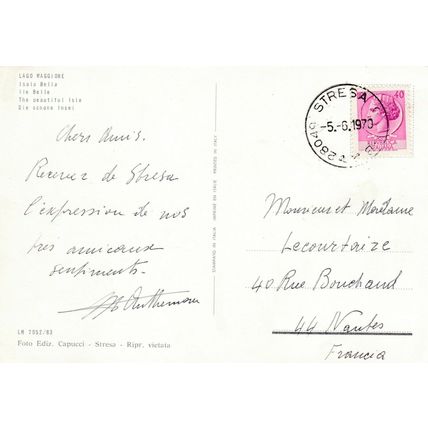 LAGO MAGGIORE
Isola Bella
Ile Belle
The beautiful Isle
Die schöne Insel
Chers Amis.
Recevez de Stresa
l'expression de nos
très amicaux
sentiments.
LM 7052/83
Foto Ediz. Capucci - Stresa - Ripr. vietata
STAMPATO IN ITALIA IMPRIMÉ EN ITALIE PRINTED IN ITALY
STRESA
-5.-6.1970
28049
40
Monsieur et Madame
Lecourtaize
40 Rue Bouchaud
44 Nantes
Francia